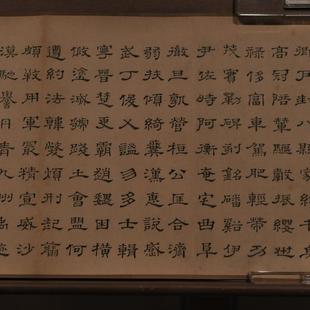 卿户封八縣家給千兵
高冠陪輦驅轂振纓世
祿侈富車駕肥輕策功
茂實勒碑刻銘磻谿伊
尹佐時阿衡奄宅曲阜
微旦孰營桓公匡合濟
弱扶傾綺迴漢惠說感
武丁俊乂密勿多士寔
寧晉楚更霸趙魏困橫
假塗滅虢踐土會盟何
遵約法韓弊煩刑起翦
頗牧用軍最精宣威沙
漠馳譽丹青九州禹跡